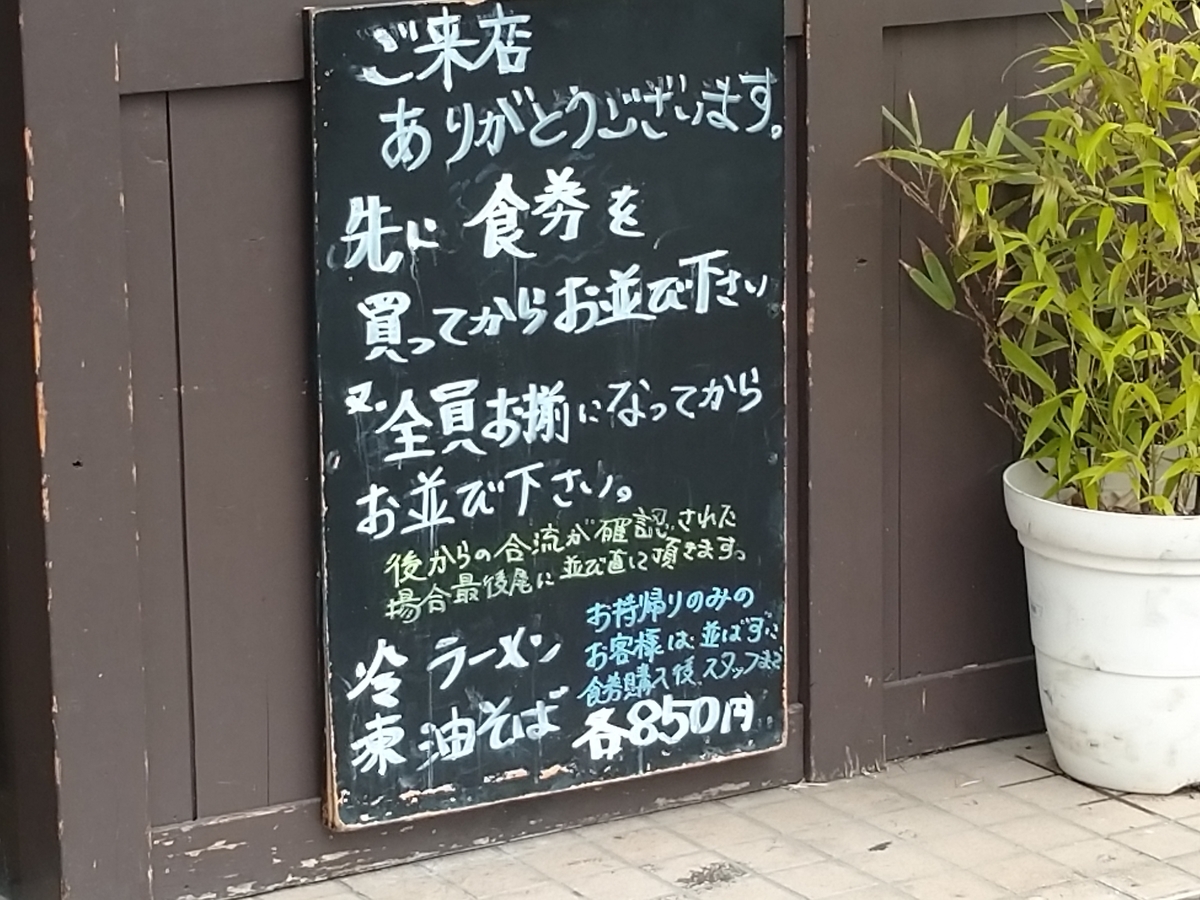 ご来店
ありがとうございます。
先に 食券を
買ってからお並び下さい
又、全員お揃になってから
お並び下さい。
後からの合流が確認された
場合最後尾に並び直して頂きます。
お持帰りのみの
お客様は並ばずに
食券購入後スタッフまで
冷 ラーメン
凍 油そば 各850円